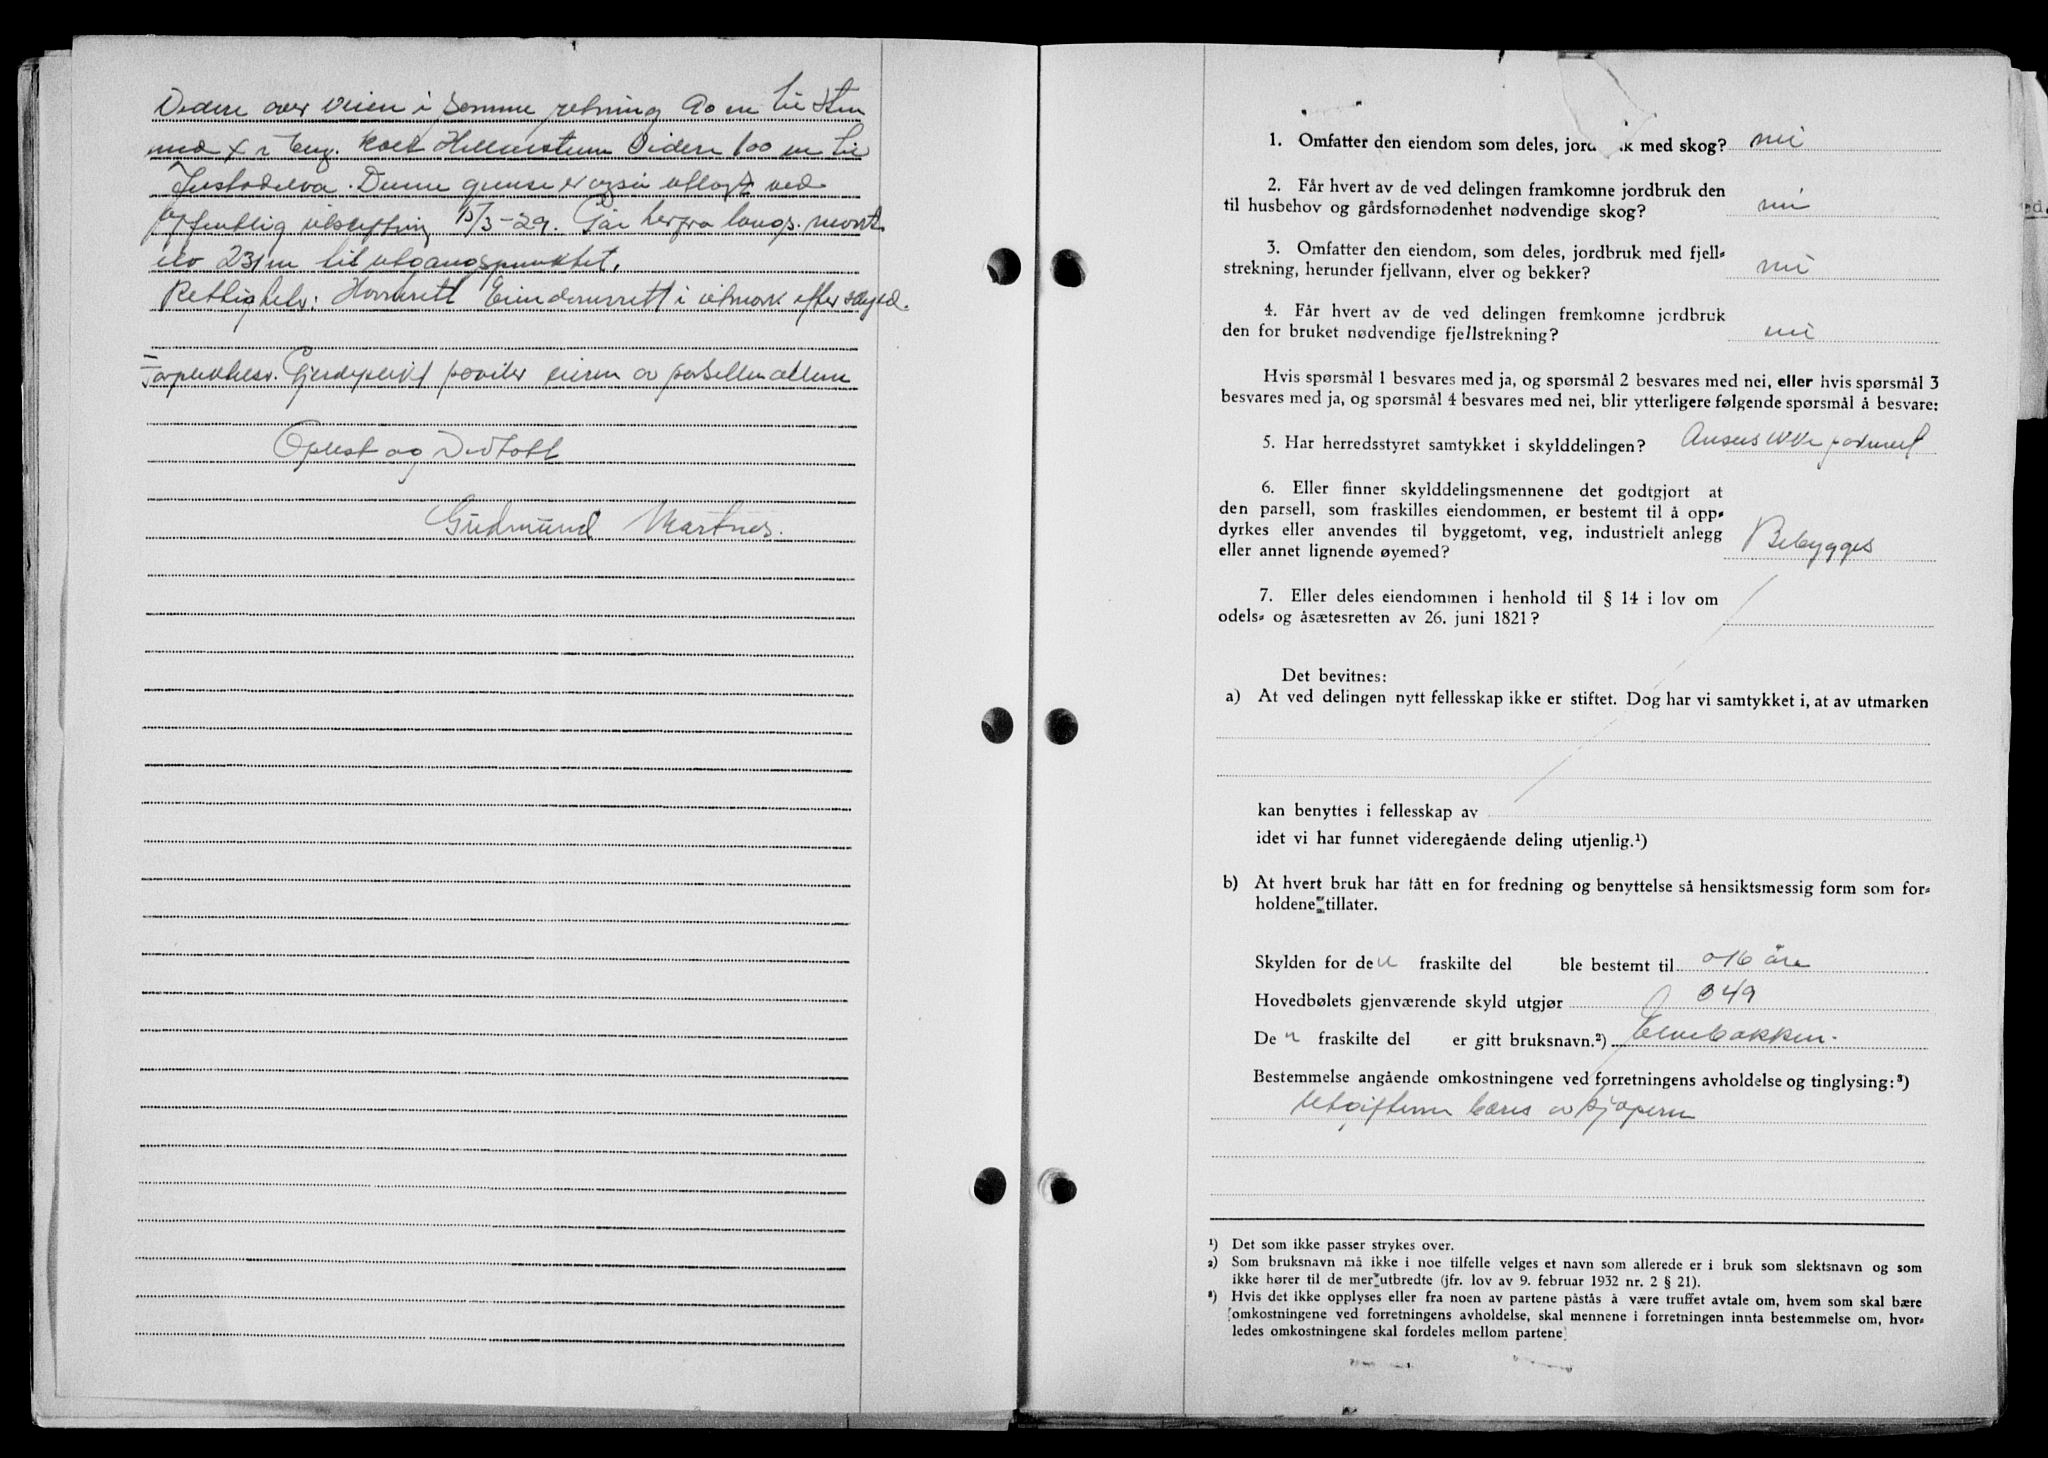 Videre over veien i samme retning 90 m til Sten
med X i Eng. kalt Hellersteen Videre 100 m til
Denne grense er også utlagt ved
offentlig utskiftning 15/3-29. Går herfra langs
elv 231 m til utgangspunktet.
Rettigheter: Havnrett Eiendomsrett i utmark efter skyld.
Forpliktelser. Gjerdeplikt påviler eieren av parsellen allene
Oplest og Vedtatt
Gudmund Martnes.
1. Omfatter den eiendom som deles, jordbruk med skog? nei
2. Får hvert av de ved delingen framkomne jordbruk den
til husbehov og gårdsfornødenhet nødvendige skog? nei
3. Omfatter den eiendom, som deles, jordbruk med fjell-
strekning, herunder fjellvann, elver og bekker? nei
4. Får hvert av de ved delingen fremkomne jordbruk
den for bruket nødvendige fjellstrekning? nei
Hvis spørsmål 1 besvares med ja, og spørsmål 2 besvares med nei, eller hvis spørsmål 3
besvares med ja, og spørsmål 4 besvares med nei, blir ytterligere følgende spørsmål å besvare:
5. Har herredsstyret samtykket i skylddelingen? Ansees ikke påkrevet
6. Eller finner skylddelingsmennene det godtgjort at
den parsell, som fraskilles eiendommen, er bestemt til å opp-
dyrkes eller anvendes til byggetomt, veg, industrielt anlegg
eller annet lignende øyemed? Bebygges
7. Eller deles eiendommen i henhold til § 14 i lov om
odels- og åsætesretten av 26. juni 1821?
Det bevitnes:
a) At ved delingen nytt fellesskap ikke er stiftet. Dog har vi samtykket i, at av utmarken
kan benyttes i fellesskap av
idet vi har funnet videregående deling utjenlig.¹)
b) At hvert bruk har fått en for fredning og benyttelse så hensiktsmessig form som for-
holdene tillater.
Skylden for den fraskilte del ble bestemt til 016 øre
Hovedbølets gjenværende skyld utgjør 049
Den fraskilte del er gitt bruksnavn.²) Elvebakken.
Bestemmelse angående omkostningene ved forretningens avholdelse og tinglysing:³)
Utgifterne bæres av kjøperen
¹) Det som ikke passer strykes over.
²) Som bruksnavn må ikke i noe tilfelle velges et navn som allerede er i bruk som slektsnavn og som
ikke hører til de mer utbredte (jfr. lov av 9. februar 1932 nr. 2 § 21).
³) Hvis det ikke opplyses eller fra noen av partene påstås å være truffet avtale om, hvem som skal bære
omkostningene ved forretningens avholdelse, skal mennene i forretningen innta bestemmelse om, hvor-
ledes omkostningene skal fordeles mellom partene